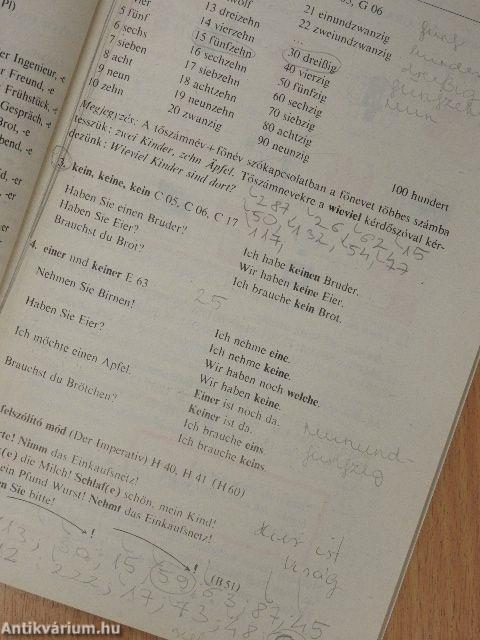 Pl)
er Ingenieur, -e
r Freund, -e
Frühstück,
Gespräch,
Brot, -e
bend, -e
d, -er
t, -er
5 fünf
6 sechs
7 sieben
8 acht
9 neun
10 zehn
13 dreizehn
14 vierzehn
15 fünfzehn
16 sechzehn
17 siebzehn
18 achtzehn
19 neunzehn
20 zwanzig
21 einundzwanzig
22 zweiundzwanzig
30 dreißig
40 vierzig
50 fünfzig
60 sechzig
70 siebzig
80 achtzig
90 neunzig
100 hundert
G 06
Megjegyzés: A tőszámnév + főnév szókapcsolatban a főnevet többes számba
tesszük: zwei Kinder, zehn Äpfel. Tőszámnevekre a wieviel kérdőszóval kér-
dezünk: Wieviel Kinder sind dort?
3. kein, keine, kein C 05, C 06, C 17
Haben Sie einen Bruder?
Haben Sie Eier?
Brauchst du Brot?
Ich habe keinen Bruder.
Wir haben keine Eier.
Ich brauche kein Brot.
287, 26, 62, 15
50, 132, 54, 47
117,
4. einer und keiner E 63
25
Nehmen Sie Birnen!
Haben Sie Eier?
Ich möchte einen Apfel.
Brauchst du Brötchen?
Ich nehme eine.
Ich nehme keine.
Wir haben noch welche.
Wir haben keine.
Einer ist noch da.
Keiner ist da.
Ich brauche eins.
Ich brauche keins.
neunund
fünfzig
felszólító mód (Der Imperativ) H 40, H 41 (H 60)
rte! Nimm das Einkaufsnetz!
(e) die Milch! Schlaf(e) schön, mein Kind!
ein Pfund Wurst! Nehmt das Einkaufsnetz!
en Sie bitte!
! ! (B 51)
13, 30, 15, 59, 63, 87, 45
12 222, 17, 73, 48
Antikvárium.hu